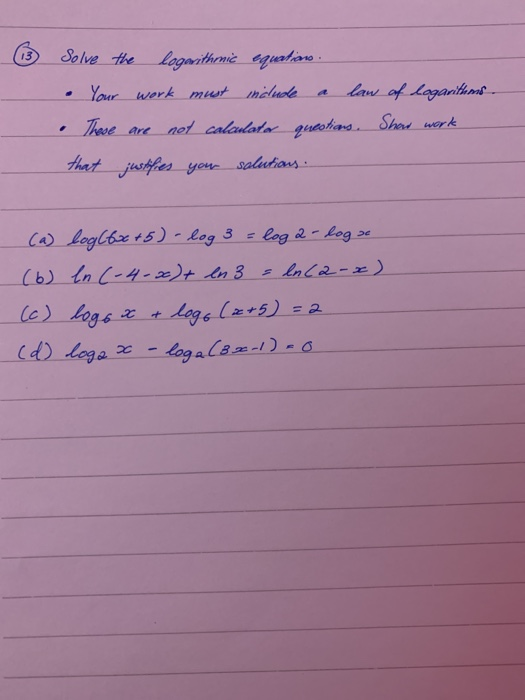 (13) Solve the logarithmic equations.
• Your work must include a law of logarithms.
• These are not calculator questions. Show work
that justifies your solutions.
(a) log(6x+5) - log 3 = log 2 - log x
(b) ln (-4-x) + ln 3 = ln(2-x)
(c) log₆ x + log₆ (x+5) = 2
(d) log₂ x - log₂(3x-1) = 0